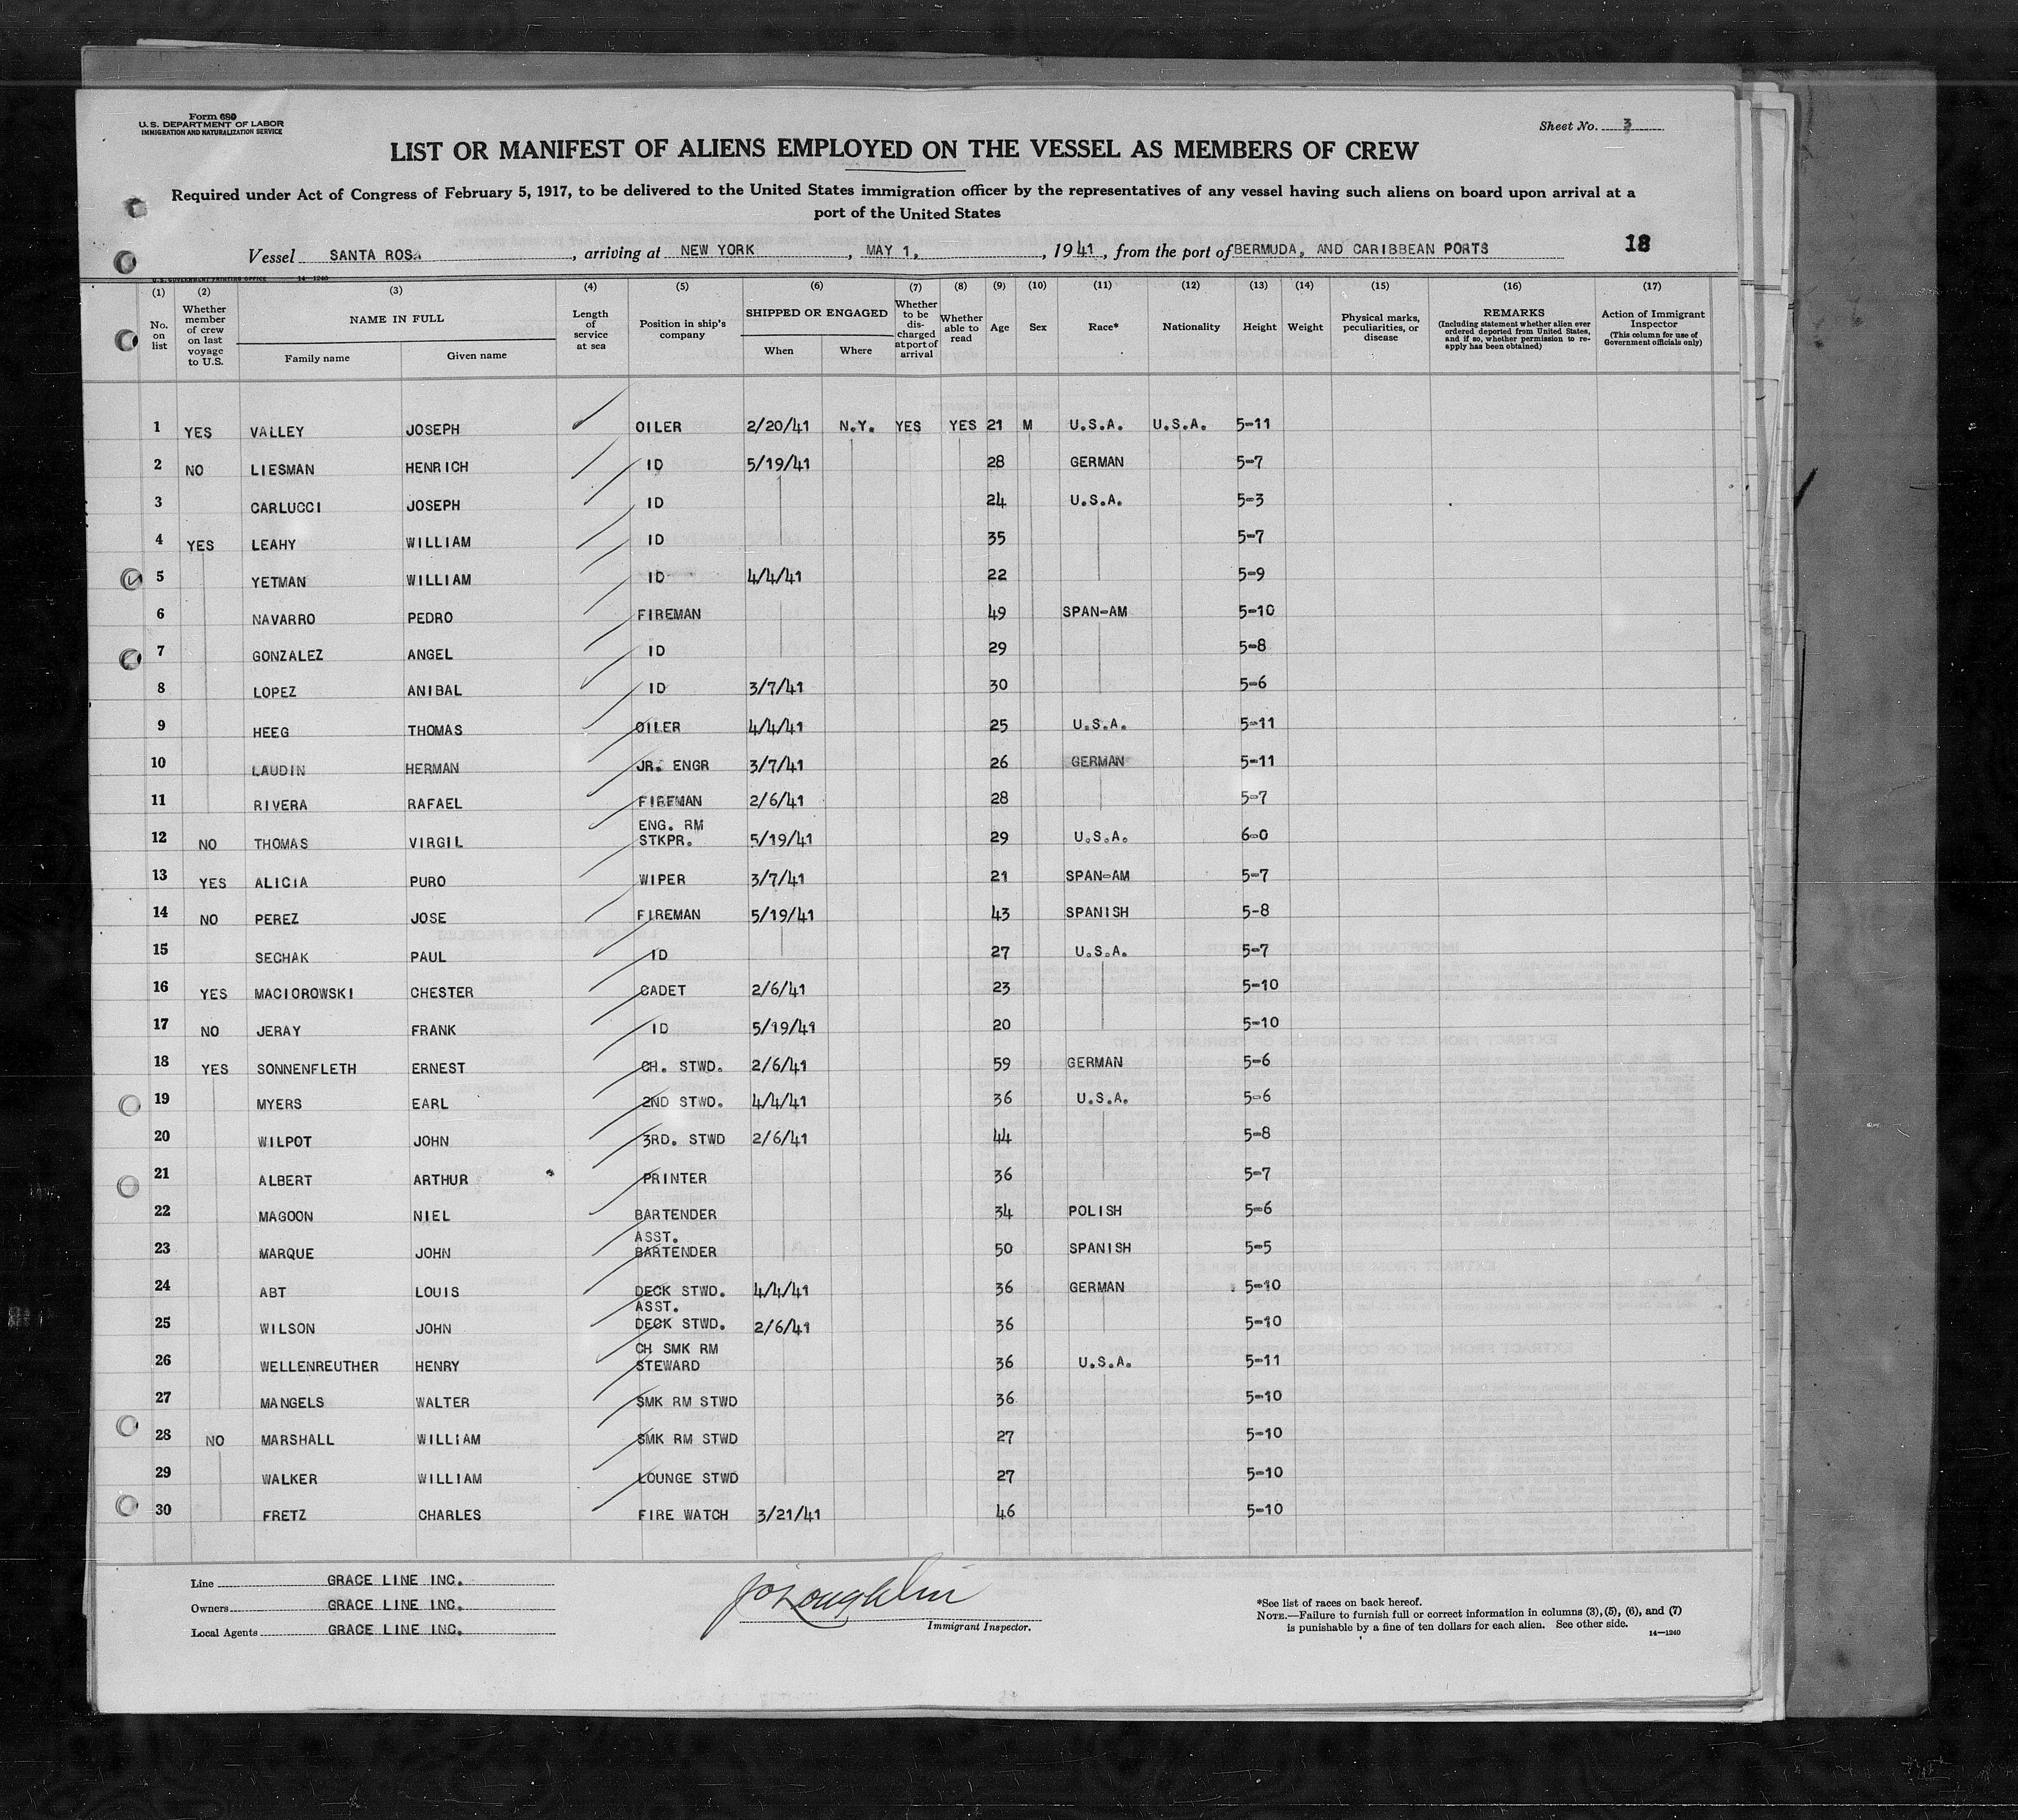 Form 680
U.S. DEPARTMENT OF LABOR
IMMIGRATION AND NATURALIZATION SERVICE
Sheet No. 3
LIST OR MANIFEST OF ALIENS EMPLOYED ON THE VESSEL AS MEMBERS OF CREW
Required under Act of Congress of February 5, 1917, to be delivered to the United States immigration officer by the representatives of any vessel having such aliens on board upon arrival at a
port of the United States
Vessel SANTA ROSA, arriving at NEW YORK, MAY 1, 1941, from the port of BERMUDA, AND CARIBBEAN PORTS 18
U.S. GOVERNMENT PRINTING OFFICE 14-1240
(1) (2) (3) (4) (5) (6) (7) (8) (9) (10) (11) (12) (13) (14) (15) (16) (17)
No. on list
Whether member of crew on last voyage to U.S.
NAME IN FULL
Family name Given name
Length of service at sea
Position in ship's company
SHIPPED OR ENGAGED
When Where
Whether to be discharged at port of arrival
Whether able to read
Age
Sex
Race*
Nationality
Height
Weight
Physical marks, peculiarities, or disease
REMARKS
(Including statement whether alien ever ordered deported from United States, and if so, whether permission to reapply has been obtained)
Action of Immigrant Inspector
(This column for use of Government officials only)
1 YES VALLEY JOSEPH OILER 2/20/41 N.Y. YES YES 21 M U.S.A. U.S.A. 5-11
2 NO LIESMAN HENRICH ID 5/19/41 28 GERMAN 5-7
3 CARLUCCI JOSEPH ID 24 U.S.A. 5-3
4 YES LEAHY WILLIAM ID 35 5-7
5 YETMAN WILLIAM ID 4/4/41 22 5-9
6 NAVARRO PEDRO FIREMAN 49 SPAN-AM 5-10
7 GONZALEZ ANGEL ID 29 5-8
8 LOPEZ ANIBAL ID 3/7/41 30 5-6
9 HEEG THOMAS OILER 4/4/41 25 U.S.A. 5-11
10 LAUDIN HERMAN JR. ENGR 3/7/41 26 GERMAN 5-11
11 RIVERA RAFAEL FIREMAN 2/6/41 28 5-7
12 NO THOMAS VIRGIL ENG. RM STKPR. 5/19/41 29 U.S.A. 6-0
13 YES ALICIA PURO WIPER 3/7/41 21 SPAN-AM 5-7
14 NO PEREZ JOSE FIREMAN 5/19/41 43 SPANISH 5-8
15 SECHAK PAUL ID 27 U.S.A. 5-7
16 YES MACIOROWSKI CHESTER CADET 2/6/41 23 5-10
17 NO JERAY FRANK ID 5/19/41 20 5-10
18 YES SONNENFLETH ERNEST CH. STWD. 2/6/41 59 GERMAN 5-6
19 MYERS EARL 2ND STWD. 4/4/41 36 U.S.A. 5-6
20 WILPOT JOHN 3RD. STWD 2/6/41 44 5-8
21 ALBERT ARTHUR PRINTER 36 5-7
22 MAGOON NIEL BARTENDER 34 POLISH 5-6
23 MARQUE JOHN ASST. BARTENDER 50 SPANISH 5-5
24 ABT LOUIS DECK STWD. 4/4/41 36 GERMAN 5-10
25 WILSON JOHN ASST. DECK STWD. 2/6/41 36 5-10
26 WELLENREUTHER HENRY CH SMK RM STEWARD 36 U.S.A. 5-11
27 MANGELS WALTER SMK RM STWD 36 5-10
28 NO MARSHALL WILLIAM SMK RM STWD 27 5-10
29 WALKER WILLIAM LOUNGE STWD 27 5-10
30 FRETZ CHARLES FIRE WATCH 3/21/41 46 5-10
Line GRACE LINE INC.
Owners GRACE LINE INC.
Local Agents GRACE LINE INC.
JO'Loughlin
Immigrant Inspector.
*See list of races on back hereof.
NOTE.—Failure to furnish full or correct information in columns (3), (5), (6), and (7)
is punishable by a fine of ten dollars for each alien. See other side.
14—1240